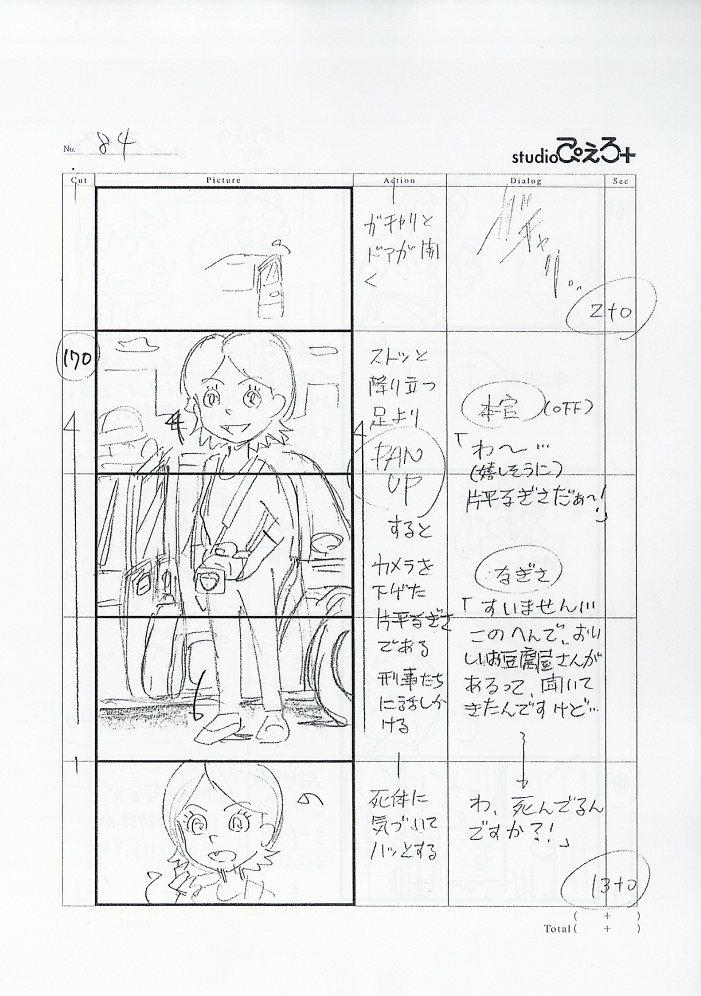 No. 84
studioぴえろ+
Cut Picture Action Dialog Sec
ガチャリと
ドアが開
く
ガチャリ…
2+0
170
ストッと
降り立つ
足より
PAN
UP
すると
カメラを
下げた
片平なぎさ
である
刑事たち
に話しか
ける
本官 (OFF)
「わ〜…
(嬉しそうに)
片平なぎさだぁ〜!」
なぎさ
「すいません…
このへんで、おい
しいお豆腐屋さんが
あるって、聞いて
きたんですけど…
死体に
気づいて
ハッとする
わ、死んでるん
ですか?!」
13+0
( + )
Total ( + )